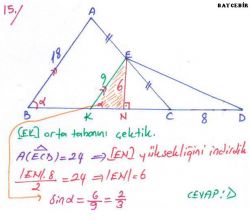 BAYCEBİR
15./
A
18
E
9
6
α
α
B
K
N
C
8
D
[EK] orta tabanı çektik.
A(ECD)=24 ⇒ [EN] yüksekliğini indirdik
|EN|.8/2 = 24 ⇒ |EN|=6
Sinα = 6/9 = 2/3
CEVAP: D